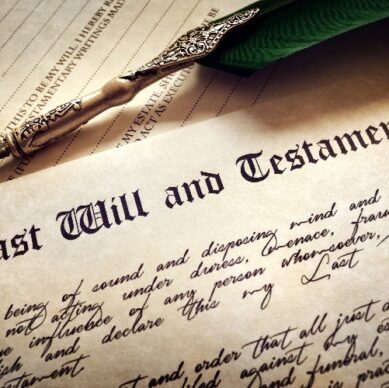 THIS TO BE MY WILL, I HEREBY
WRITINGS MA
MY ESTATE, SH
ACT AS EXECU
ast Will and Testamen
being of sound and disposing mind and
not acting under duress, menace, frau
influence of any person whomsoever,
and declare this my Last
tament
and order that all just d
against my es
and funeral,